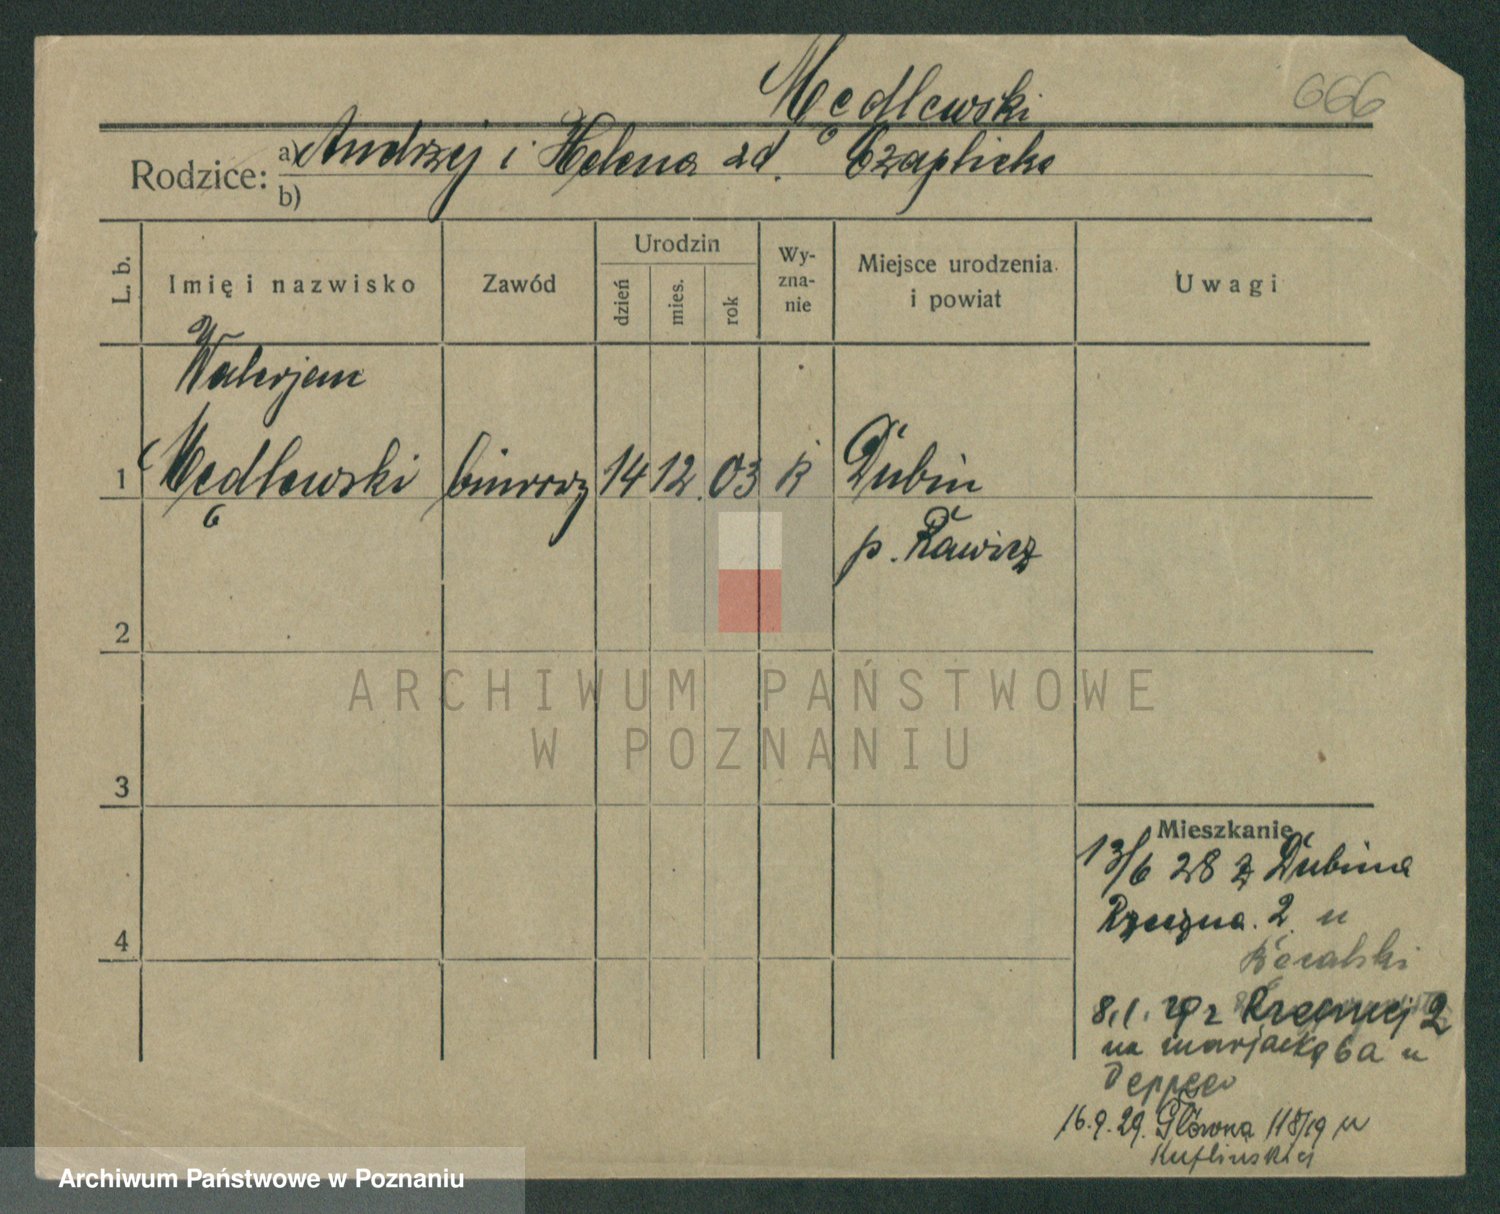 Mędlewski 666
Rodzice: a) Andrzej i Helena zd. Czaplicka
b)
L. b. Imię i nazwisko Zawód Urodzin dzień mies. rok Wy-zna-nie Miejsce urodzenia i powiat Uwagi
Walerjan
1 Mędlewski biurowy 14 12. 03 R Dubin
p. Rawicz
2
ARCHIWUM PAŃSTWOWE
W POZNANIU
3
Mieszkanie
13/6 28 z Dubina
Rzeczna. 2. u
4
8.1. 29 z 2
na marjacką 6a u
16.9.29. Główna 118/19 u
Archiwum Państwowe w Poznaniu